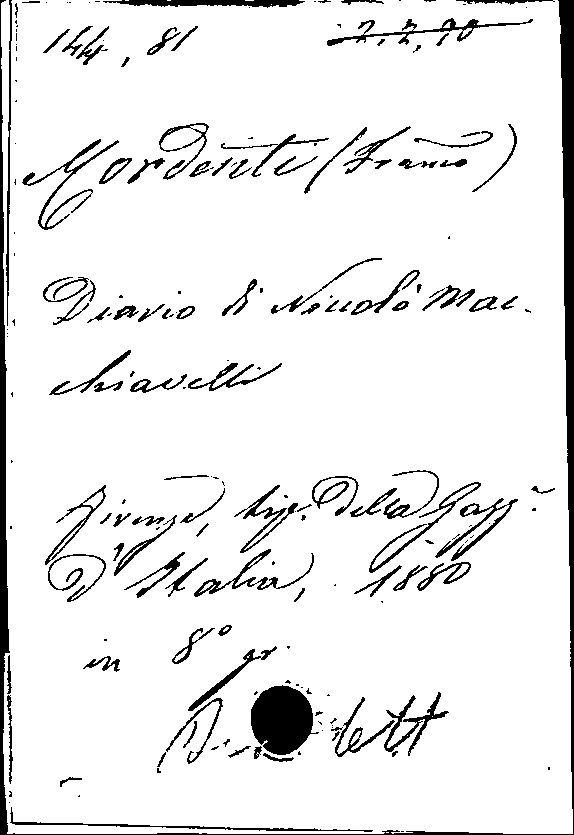 144, 81 2, 2, 70
Mordenti (Franco)
Diario di Niccolò Mac-
chiavelli
Firenze, tip. della Gazz.a
d'Italia, 1880
in 8° gr.